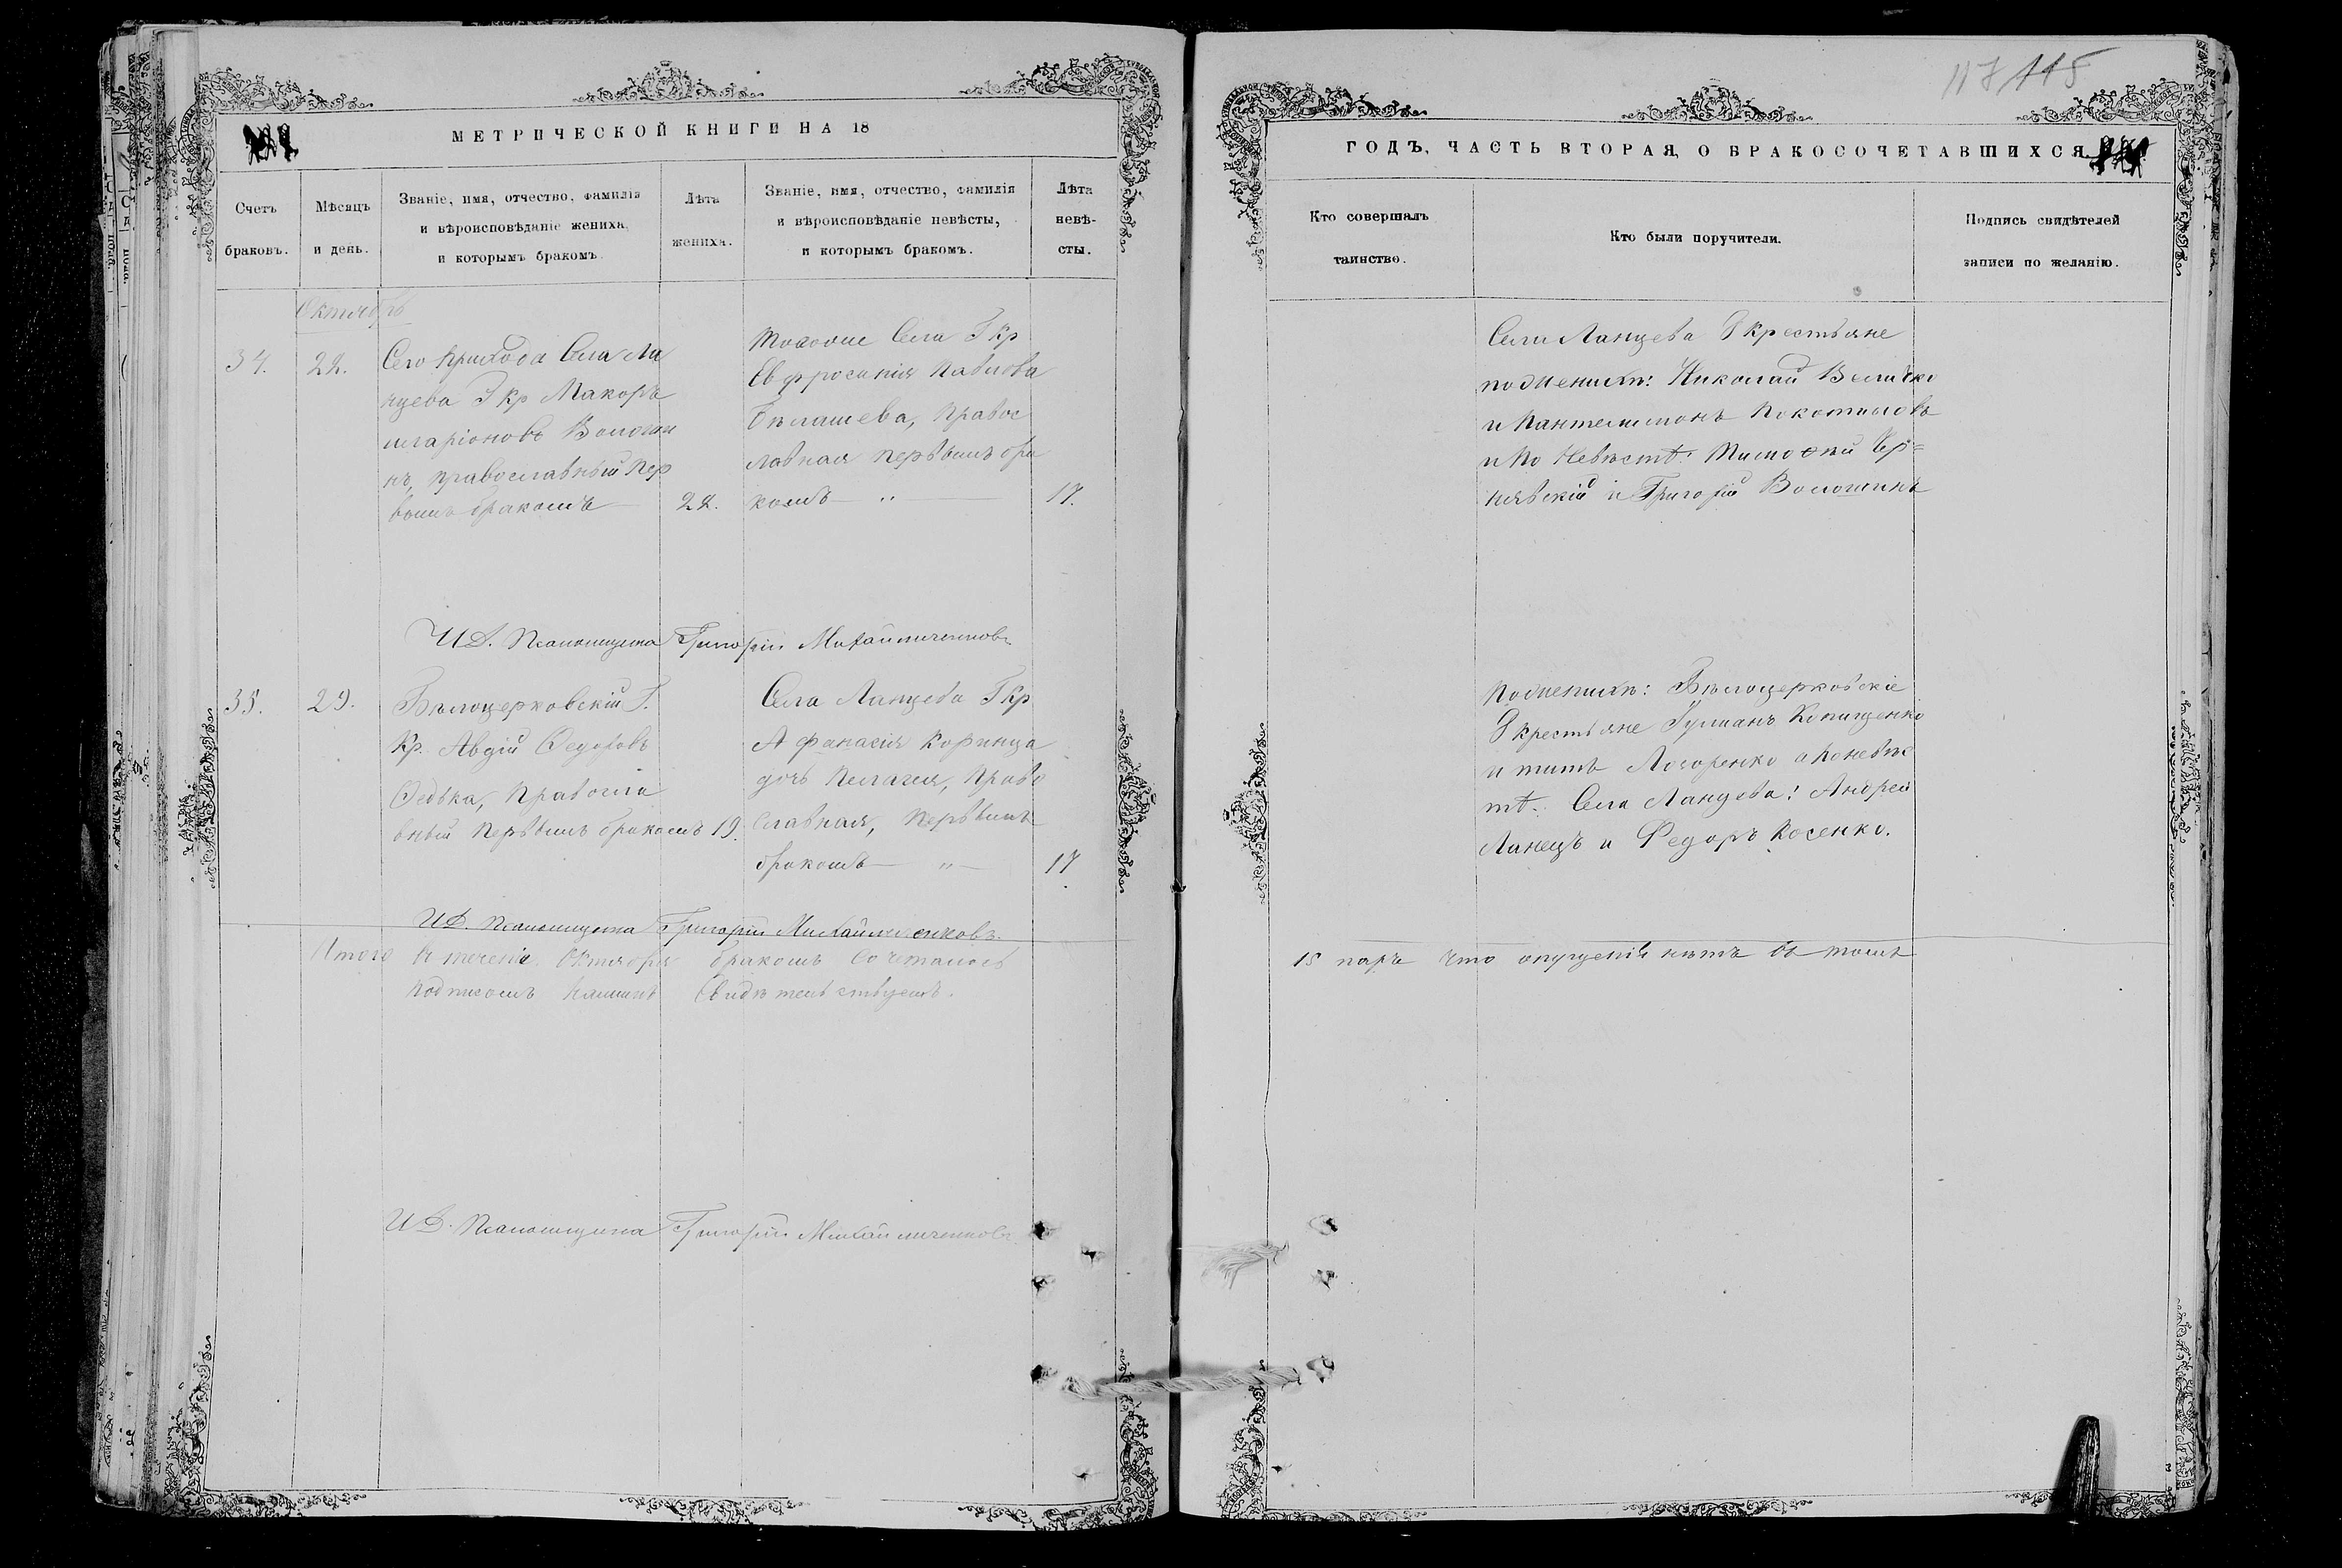 117 115
МЕТРИЧЕСКОЙ КНИГИ НА 18
Счетъ
браковъ.
Мѣсяцъ
и день.
Званіе, имя, отчество, фамилія
и вѣроисповѣданіе жениха,
и которымъ бракомъ.
Лѣта
жениха.
Званіе, имя, отчество, фамилія
и вѣроисповѣданіе невѣсты,
и которымъ бракомъ.
Лѣта
невѣ-
сты.
Октябрь
34.
22.
Сего прихода Села Ла
нцева Г Кр Макоръ
иларіоновъ Волоши
нъ, православный пер
вымъ бракомъ
22.
тогоже Села Г Кр
Евфросинія Павлова
Бѣлашева, правос
лавная первымъ бра
комъ — „ —
17.
И.Д. Псаломщика Григорій Михайличенковъ
35.
29.
Бѣлоцерковскій Г.
Кр. Авдій Федоровъ
Федька, Правосла
вный первымъ бракомъ
19.
Села Ланцева Г Кр
Афанасія Коринца
дочь Пелагея, Право
славная, первымъ
бракомъ — „ —
17
И.Д. Псаломщика Григорій Михайличенковъ.
Итого в теченіе Октября бракомъ Сочеталось
подписомъ нашимъ Свидѣтельствуемъ.
И.Д. Псаломщика Григорій Михайличенковъ
ГОДЪ, ЧАСТЬ ВТОРАЯ, О БРАКОСОЧЕТАВШИХСЯ.
Кто совершалъ
таинство.
Кто были поручители.
Подпись свидѣтелей
записи по желанію.
Села Ланцева Г крестьяне
по женихѣ: Николай Величко
и Пантелимонъ Покотиловъ
и по Невѣстѣ: Тимофей Чер=
нявскій и Григорій Волошинъ
По женихѣ: Бѣлоцерковскіе
Г крестьяне Гулианъ Копищенко
и титъ а поневѣс
тѣ: Села Ланцева: Андрей
Ланецъ и Федоръ Косенко.
15 паръ что опущенія нѣтъ въ томъ